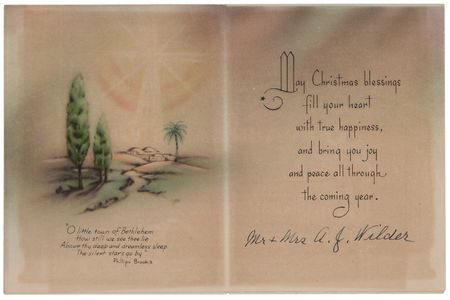 "O little town of Bethlehem
How still we see thee lie
Above thy deep and dreamless sleep
The silent stars go by
Phillips Brooks
May Christmas blessings
fill your heart
with true happiness,
and bring you joy
and peace all through
the coming year.
Mr & Mrs A. J. Wilder